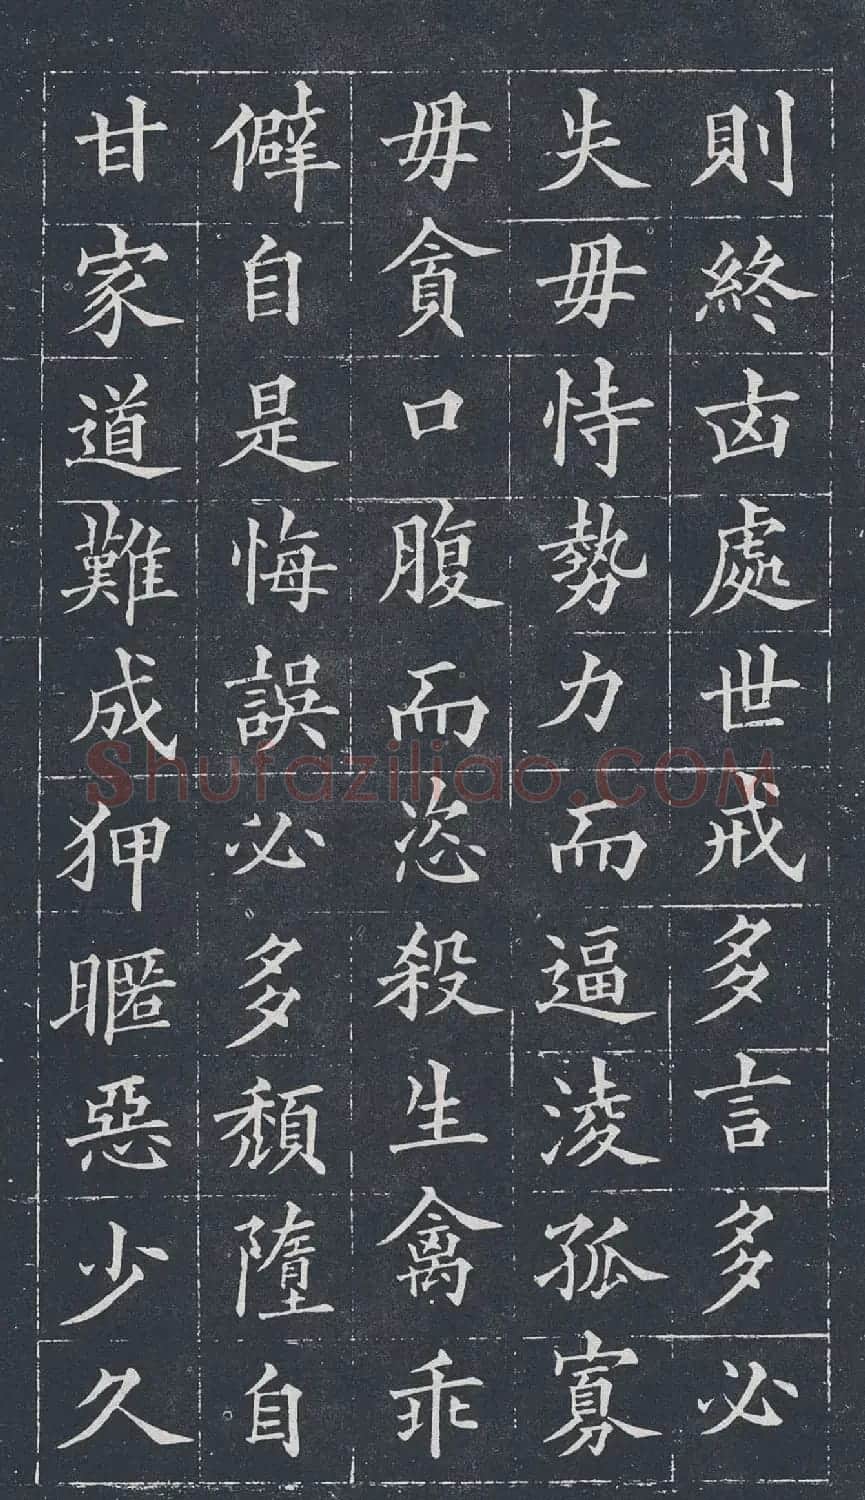 則終凶處世戒多言多必
失毋恃勢力而逼淩孤寡
毋貪口腹而恣殺生禽乖
僻自是悔誤必多頹隳自
甘家道難成狎暱惡少久
Shufaziliao.COM